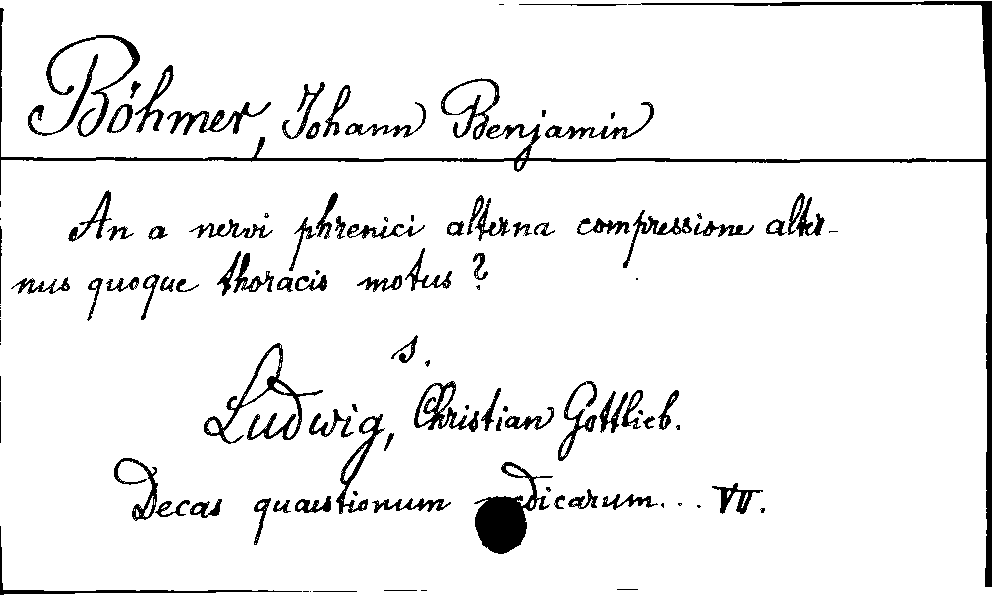 Böhmer, Johann Benjamin
An a nervi phrenici alterna compressione alter-
nus quoque thoracis motus?
s.
Ludwig, Christian Gottlieb.
Decas quaestionum medicarum... VII.